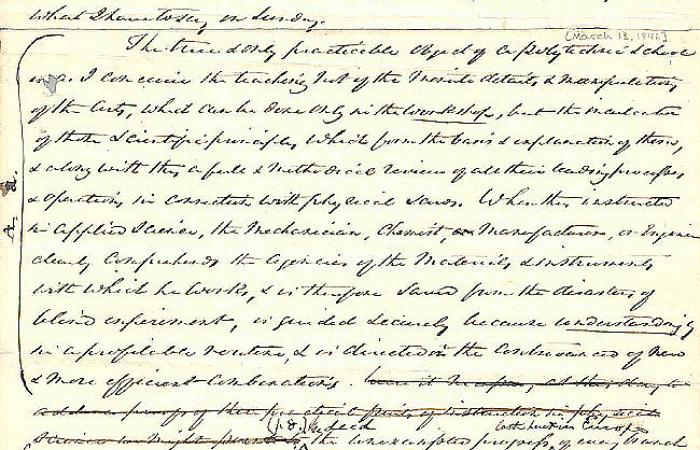 what I have to say on Sunday.
[March 13, 1846]
The true & only practicable object of a polytechnic school
is as I conceive the teaching not of the minute details & manipulations
of the Arts, which can be done only in the workshop, but the inculcation
of those scientific principles which form the basis & explanation of them,
& along with this a full & methodical review of all their leading processes
& operations in connection with physical laws. When thus instructed
in applied science, the Mechanician, Chemist, or Manufacturer, or Engineer
clearly comprehends the agencies of the Materials & instruments
with which he works, & is therefore saved from the disasters of
blind experiment, is guided securely because understandingly
in a profitable routine, & is directed in the contrivance of new
& more efficient combinations. were it at this day to
proofs of the practical of instruction in physical
(p.8.) Indeed both here & in Europe
Science we might point to the unexampled progress of every branch